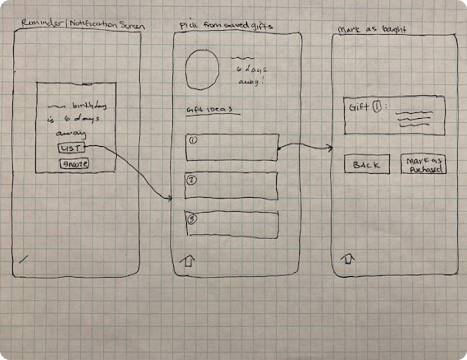 Reminder/Notification Screen
birthday
is 6 days
away
LIST
Snooze
Pick from saved gifts
6 days
away!
Gift ideas
1
2
3
Mark as bought
Gift 1:
BACK
Mark as
Purchased